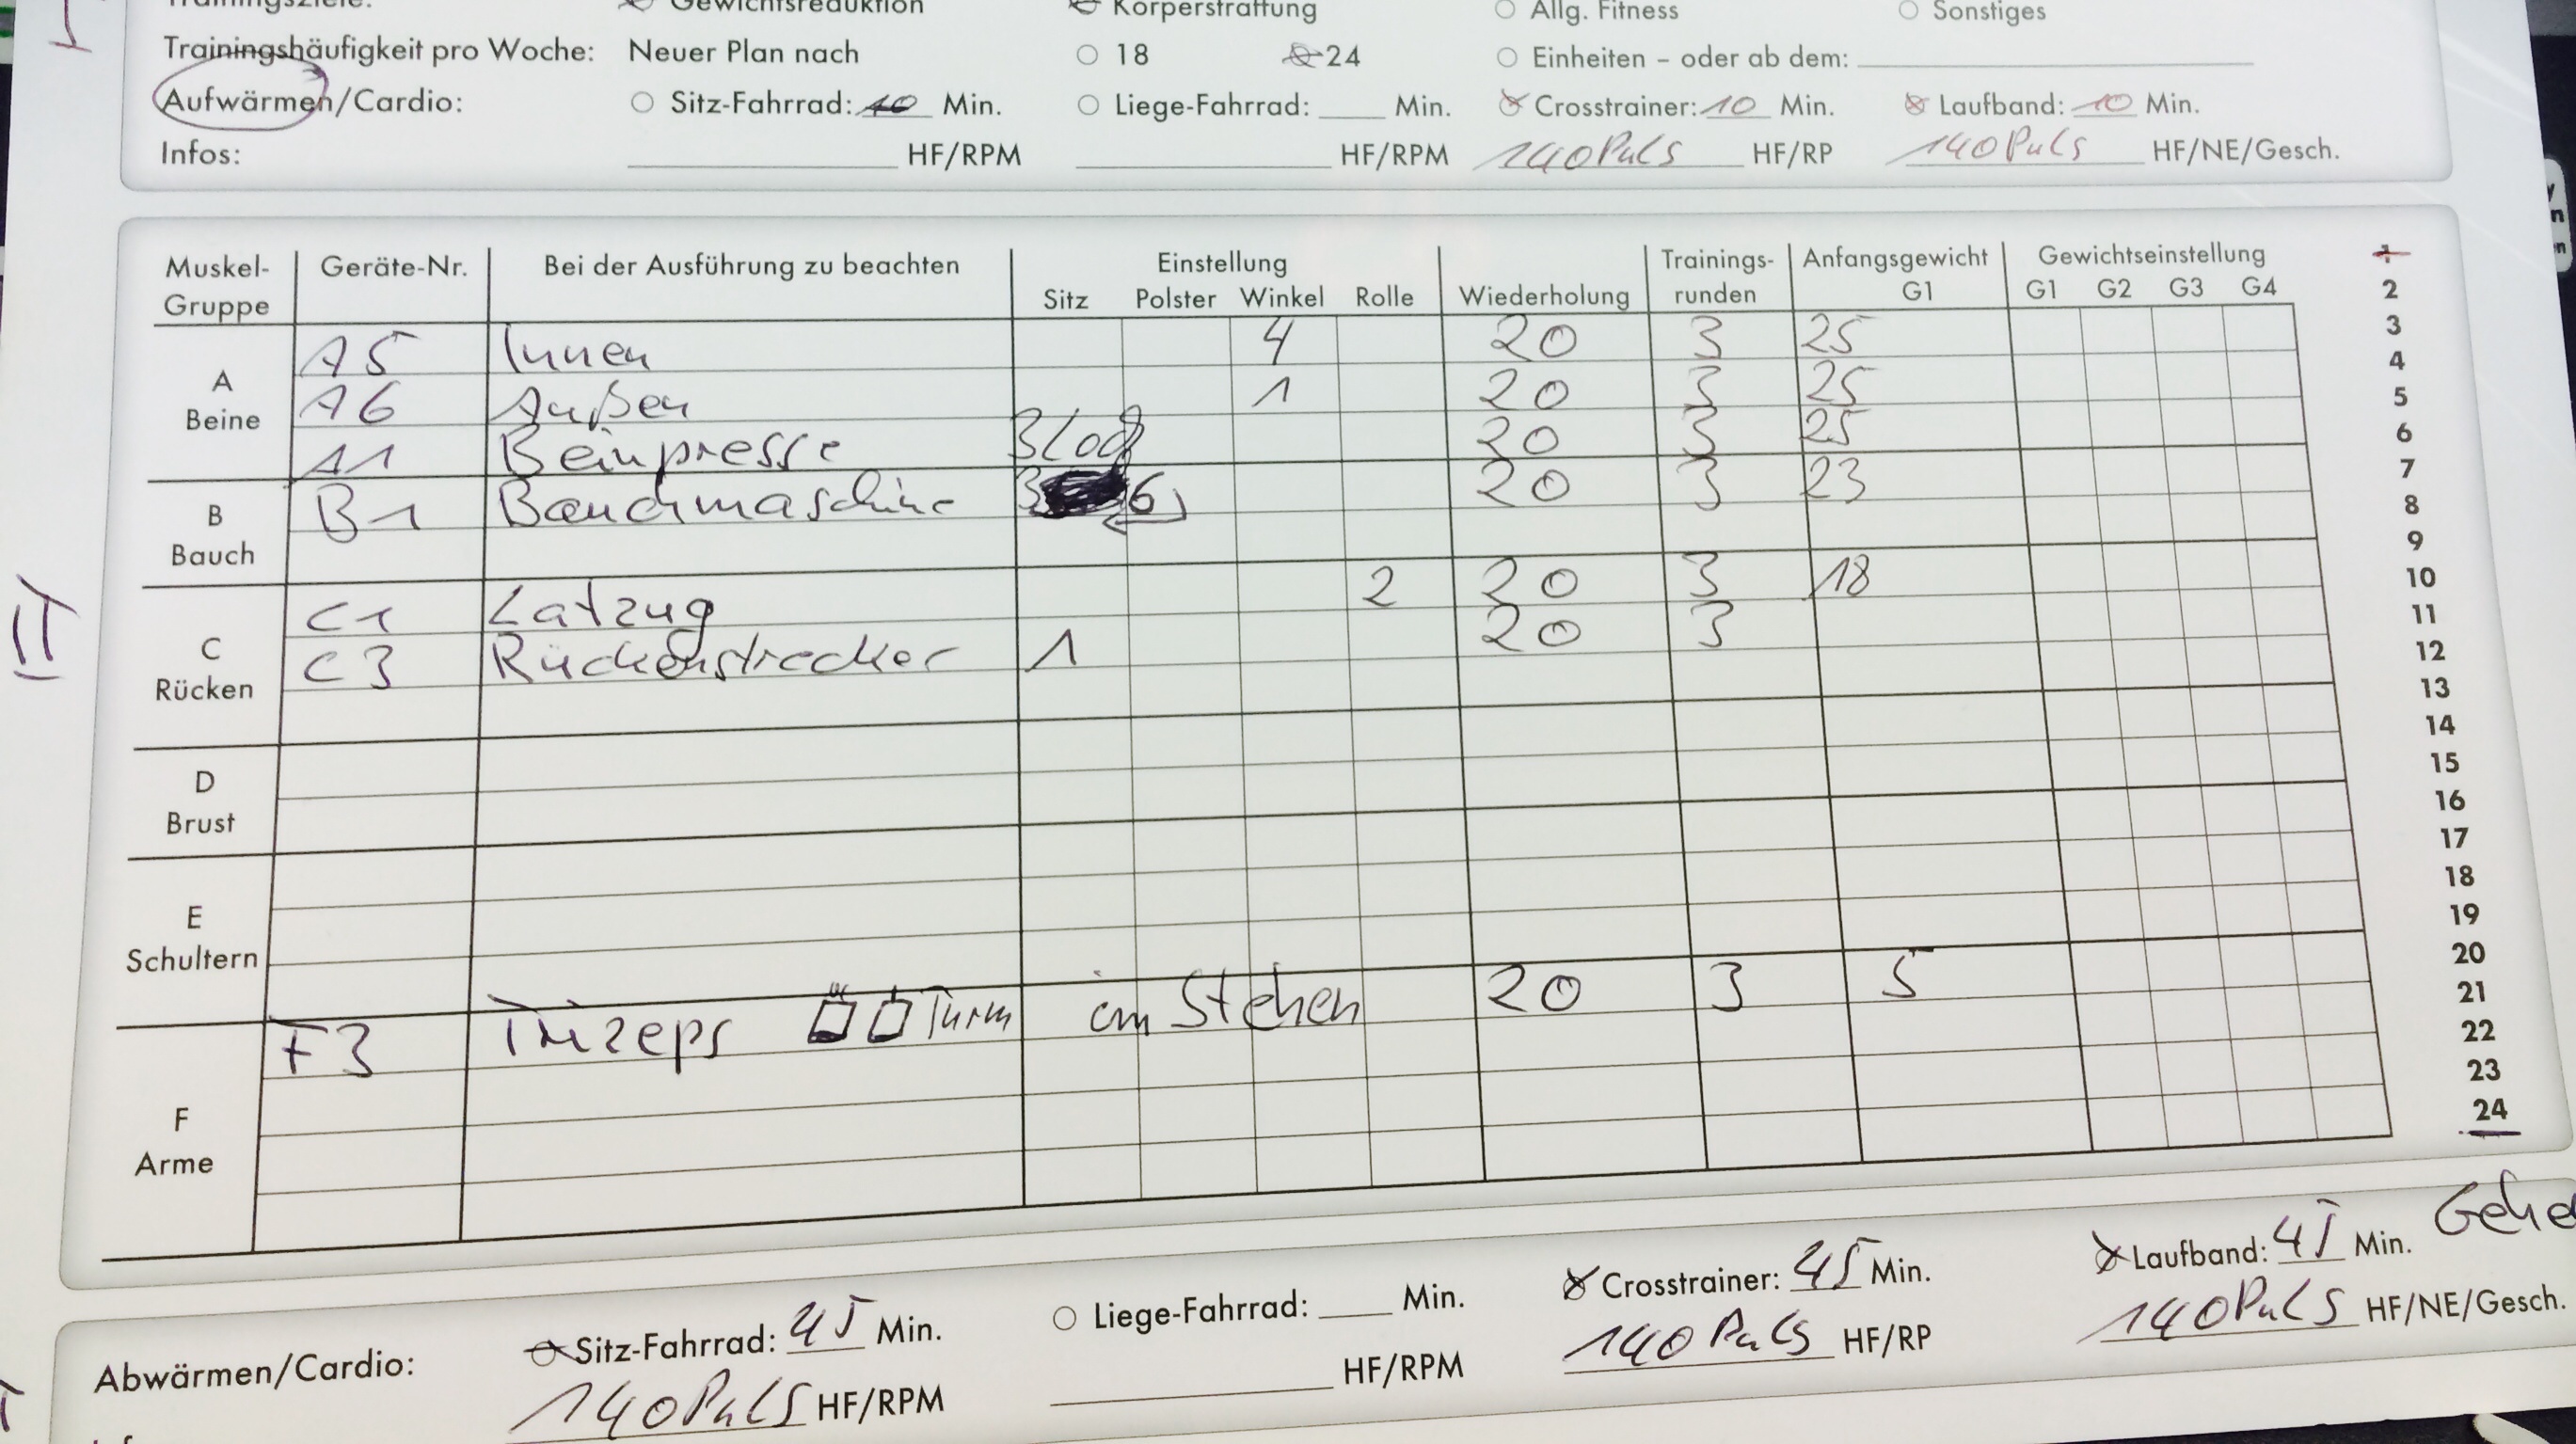 Trainingsziele: Gewichtsreduktion Körperstraffung Allg. Fitness Sonstiges
Trainingshäufigkeit pro Woche: Neuer Plan nach 18 24 Einheiten – oder ab dem:
Aufwärmen/Cardio: Sitz-Fahrrad: 10 Min. Liege-Fahrrad: Min. Crosstrainer: 10 Min. Laufband: 10 Min.
Infos: HF/RPM HF/RPM 140 Puls HF/RP 140 Puls HF/NE/Gesch.
Muskel- Geräte-Nr. Bei der Ausführung zu beachten Einstellung Trainings- Anfangsgewicht Gewichtseinstellung 1
Gruppe Sitz Polster Winkel Rolle Wiederholung runden G1 G1 G2 G3 G4 2
3
A5 Innen 4 20 3 25
4
A
A6 Außen 1 20 3 25
5
Beine
A1 Beinpresse 3 Loch 20 3 25
6
7
B B1 Bauchmaschine 3 6 20 3 23
8
Bauch
9
10
C1 Latzug 2 20 3 18
11
C
C3 Rückenstrecker 1 20 3
12
Rücken
13
14
D
15
Brust
16
17
18
E
19
Schultern
20
F3 Trizeps Turm im Stehen 20 3 5
21
22
F
23
Arme
24
Abwärmen/Cardio: Sitz-Fahrrad: 45 Min. Liege-Fahrrad: Min. Crosstrainer: 45 Min. Laufband: 45 Min.
140 Puls HF/RPM HF/RPM 140 Puls HF/RP 140 Puls HF/NE/Gesch.
II